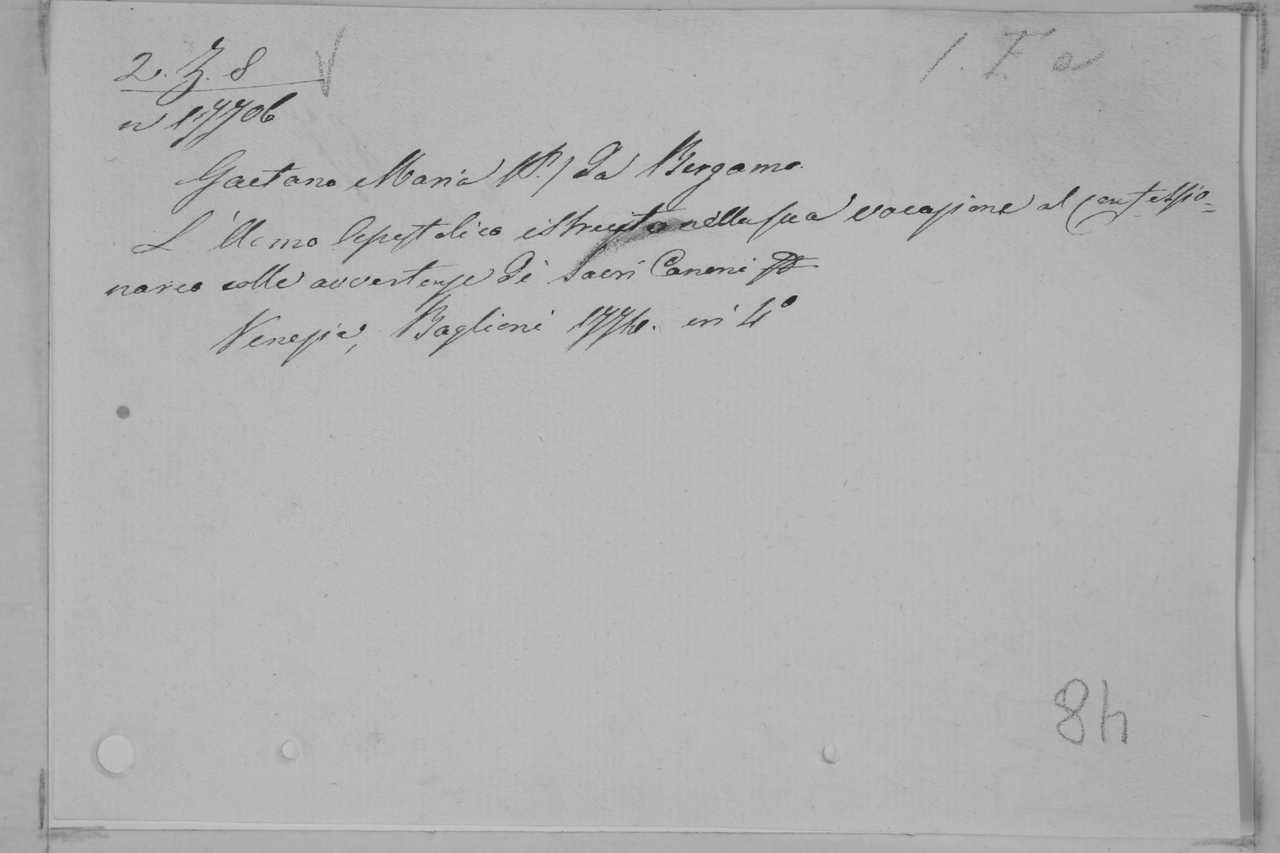 2. Z. 8
n 17706
1. F. a
Gaetano Maria (P.) da Bergamo
L'Uomo Apostolico istruito nella sua vocazione al confessio=
nario colle avvertenze di Sacri Canoni
Venezia, Baglioni in 4°
84